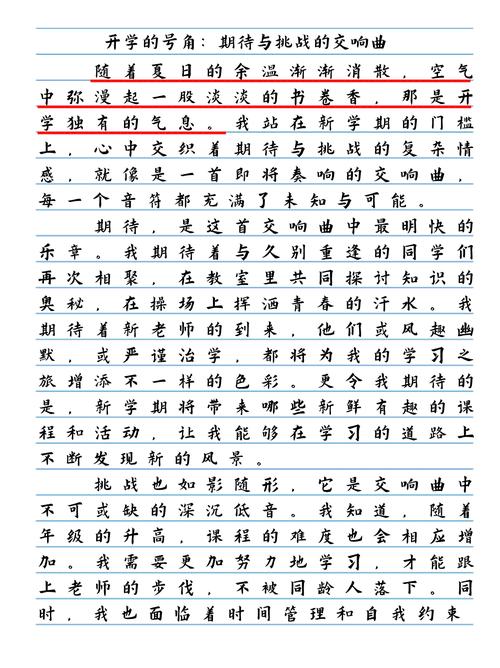 开学的号角：期待与挑战的交响曲
随着夏日的余温渐渐消散，空气
中弥漫起一股淡淡的书卷香，那是开
学独有的气息。我站在新学期的门槛
上，心中交织着期待与挑战的复杂情
感，就像是一首即将奏响的交响曲，
每一个音符都充满了未知与可能。
期待，是这首交响曲中最明快的
乐章。我期待着与久别重逢的同学们
再次相聚，在教室里共同探讨知识的
奥秘，在操场上挥洒青春的汗水。我
期待着新老师的到来，他们或风趣幽
默，或严谨治学，都将为我的学习之
旅增添不一样的色彩。更令我期待的
是，新学期将带来哪些新鲜有趣的课
程和活动，让我能够在学习的道路上
不断发现新的风景。
挑战也如影随形，它是交响曲中
不可或缺的深沉低音。我知道，随着
年级的升高，课程的难度也会相应增
加。我需要更加努力地学习，才能跟
上老师的步伐，不被同龄人落下。同
时，我也面临着时间管理和自我约束